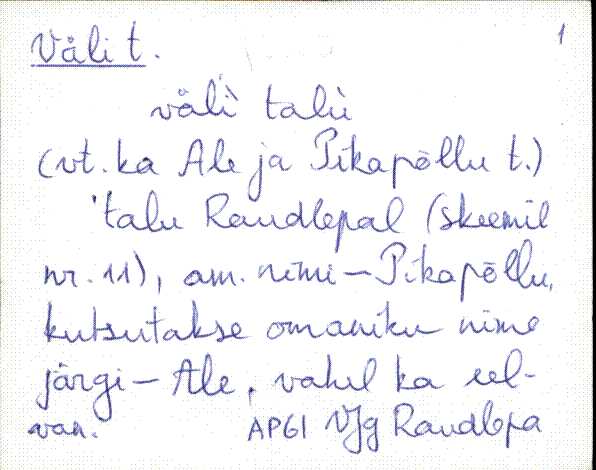 Väli t. 1
välì̬ talù
(vt. ka Ale ja Pikapõllu t.)
'talu Raudlepal (skeemil
nr. 11), am. nimi – Pikapõllu,
kutsutakse omaniku nime
järgi – Ale, vahel ka eel-
van. AP61 VJg Raudlepa